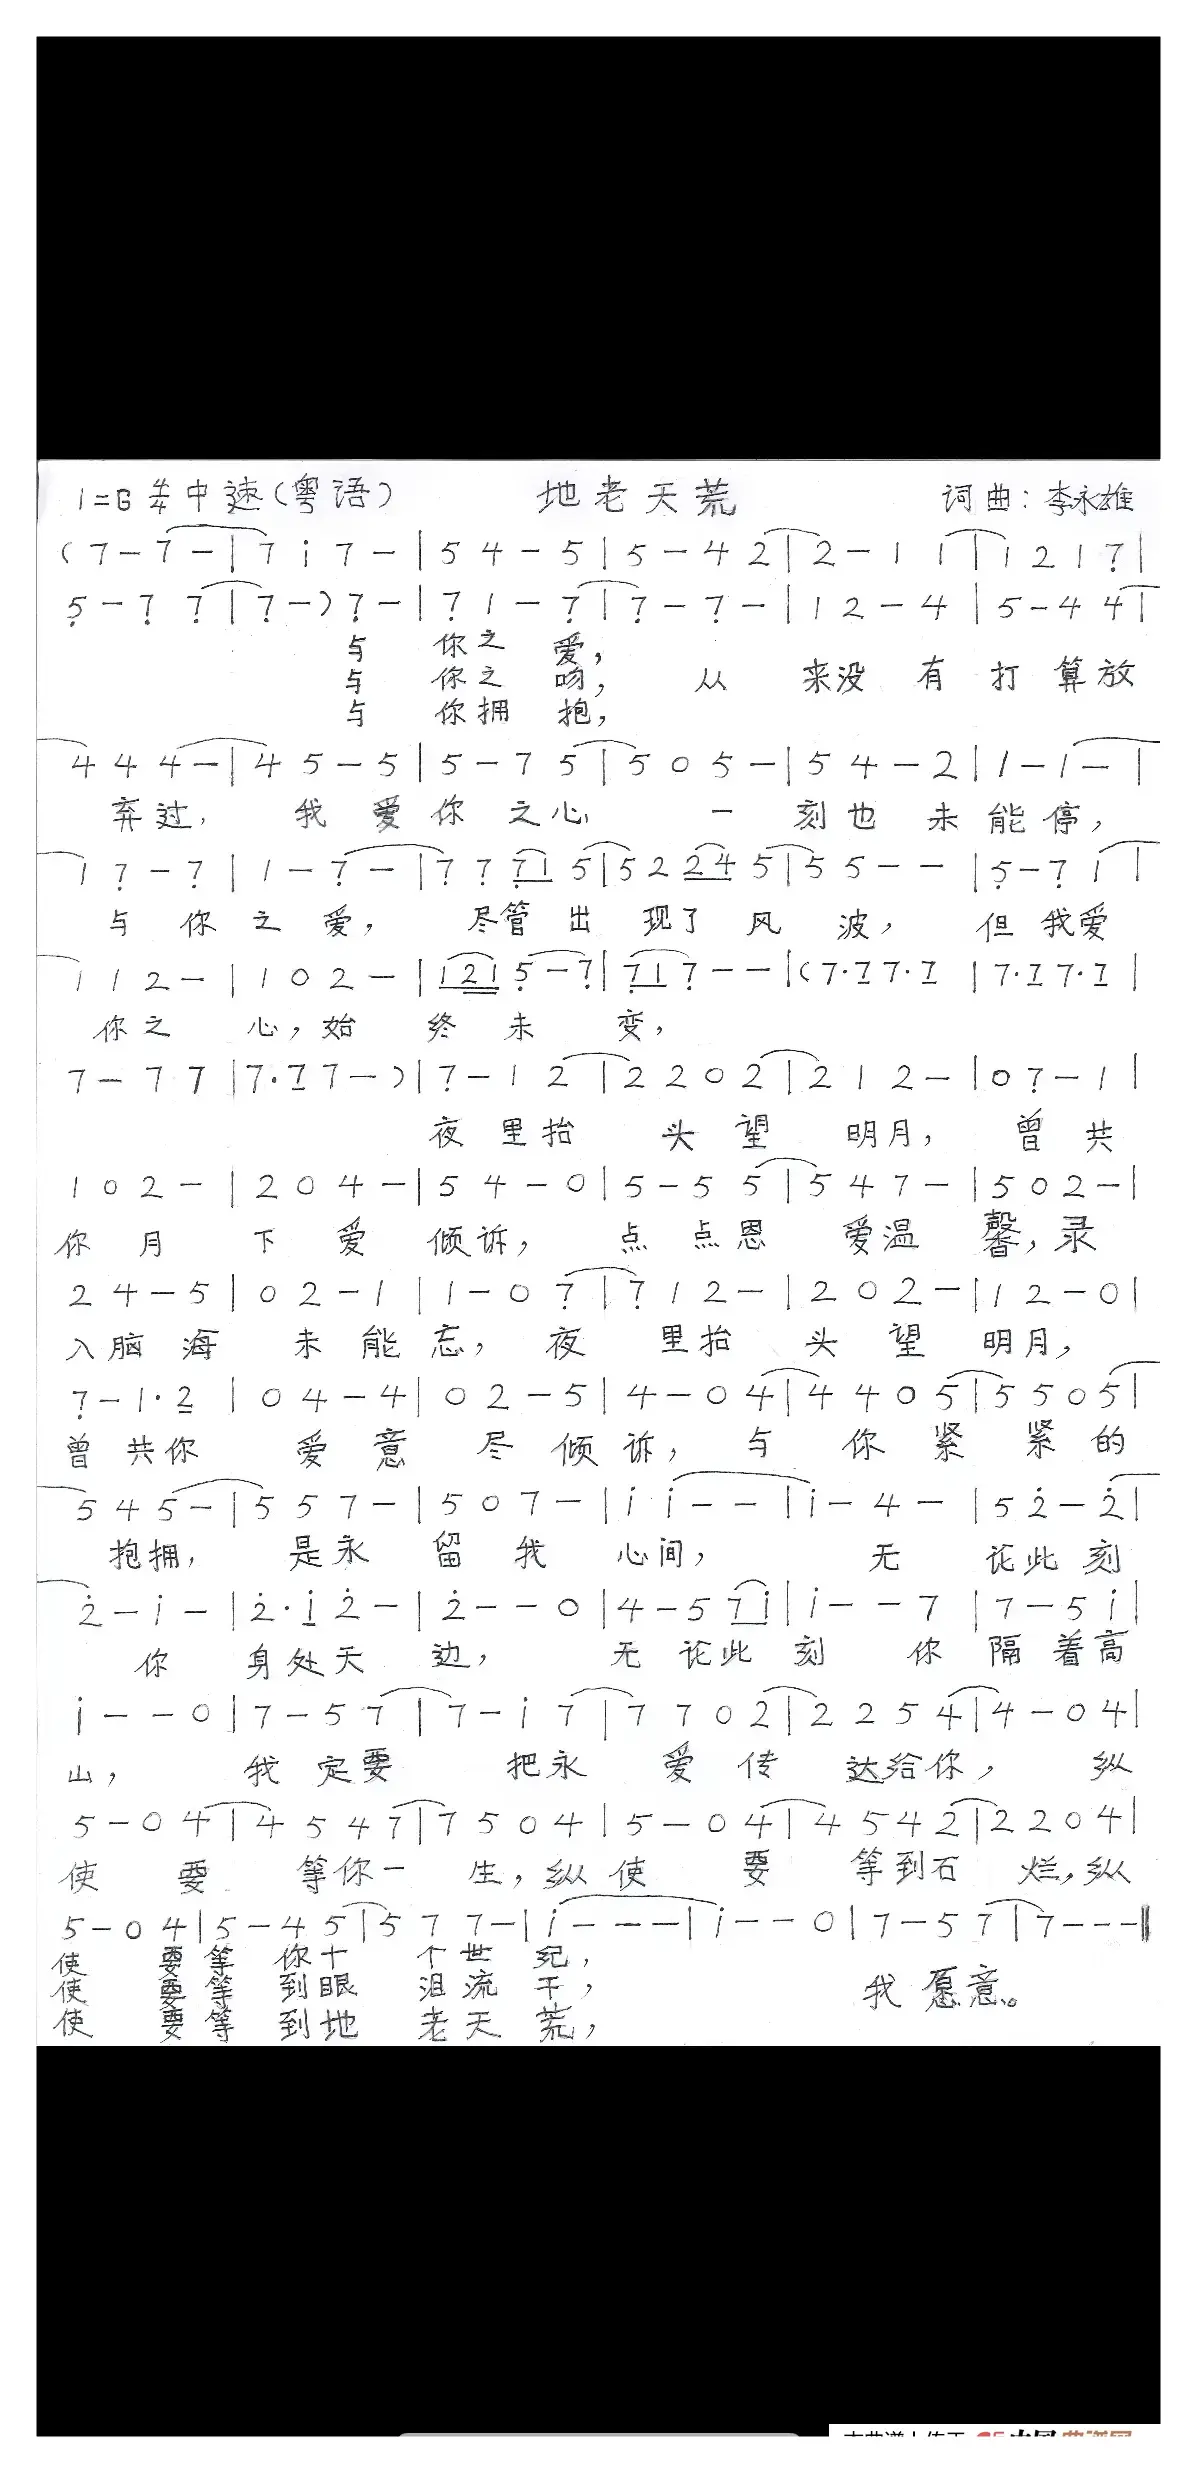 1=G 4/4 中速(粤语) 地老天荒 词曲:李永雄
(7-7-|7i7-|54-5|5-42|2-11|1217̣|
5̣-7̣7̣|7̣-)7̣-|7̣1-7̣|7̣-7̣-|12-4|5-44|
与 你之 爱,
与 你之 吻, 从 来没 有 打 算 放
与 你拥 抱,
444-|45-5|5-75|505-|54-2|1-1-|
弃过, 我 爱 你 之心 一 刻也 未 能停,
17̣-7̣|1-7̣-|7̣7̣7̣15|52245|55--|5̣-7̣1|
与 你 之 爱, 尽管 出 现了 风 波, 但 我爱
112-|102-|1215̣-7̣|7̣17̣--|(7·17·1|7·17·1|
你之 心,始 终 未 变,
7-77|7·17-)|7̣-12|2202|212-|07̣-1|
夜 里抬 头 望 明月, 曾 共
102-|204-|54-0|5-55|547-|502-|
你 月 下 爱 倾诉, 点 点恩 爱温 馨,录
24-5|02-1|1-07̣|7̣12-|202-|12-0|
入脑 海 未 能 忘, 夜 里抬 头 望 明月,
7̣-1·2|04-4|02-5|4-04|4405|5505|
曾 共你 爱 意 尽 倾 诉, 与 你 紧 紧 的
545-|557-|507-|ii--|i-4-|52̇-2̇|
抱拥, 是永 留 我 心间, 无 论此刻
2̇-i-|2̇·i2̇-|2̇--0|4-57i|i--7|7-5i|
你 身处天 边, 无 论此 刻 你 隔着高
i--0|7-57|7-i7|7702|2254|4-04|
山, 我 定要 把永 爱 传 达给你, 纵
5-04|4547|7504|5-04|4542|2204|
使 要 等你一 生,纵使 要 等到石 烂,纵
5-04|5-45|577-|i---|i--0|7-57|7---‖
使 要等 你十 个世 纪,
使 要等 到眼 泪流 干, 我 愿意。
使 要等 到地 老天 荒,